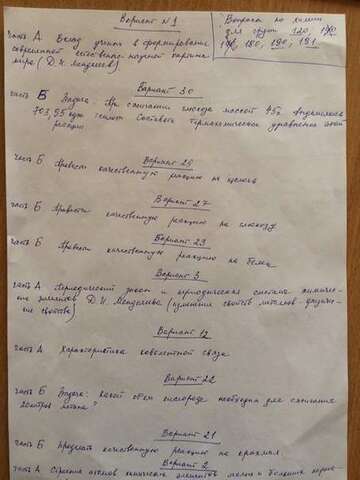 Вариант №1
Вопросы по химии
для групп 120, 170
часть А Вклад ученых в формирование
190, 180, 190, 191
современной естественно-научной картины
мира (Д. И. Менделеев)
Вариант 30
часть Б Задача: При сжигании массой 45г выделилось
703,95 кдж теплоты Составить термохимическое уравнение этой
реакции
Вариант 25
часть Б Привести качественную реакцию на щелочь
Вариант 27
часть Б Привести качественную реакцию на глюкозу
Вариант 23
часть Б Привести качественную реакцию на белки
Вариант 3
часть А Периодический закон и периодическая система химичес-
ких элементов Д. И. Менделеева (изменение свойств металлов
свойства)
Вариант 12
часть А Характеристика ковалентной связи
Вариант 22
часть Б Задача: Какой объем кислорода необходим для сжигания
метана?
Вариант 21
часть Б Предложить качественную реакцию на крахмал
Вариант 2
часть А Строение атомов химических элементов малых и больших перио-